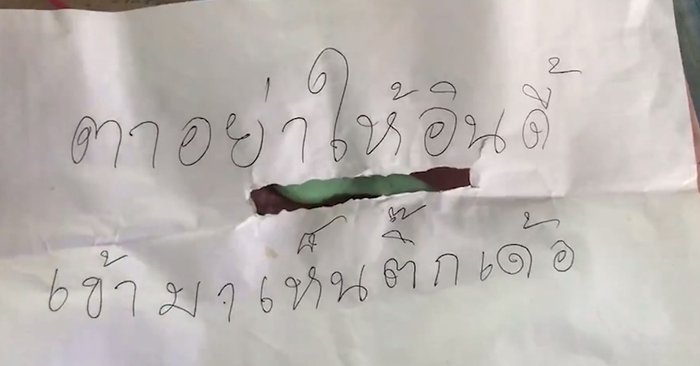 ตาอย่าให้อินดี้
เข้ามาเห็นตึ๊กเด้อ